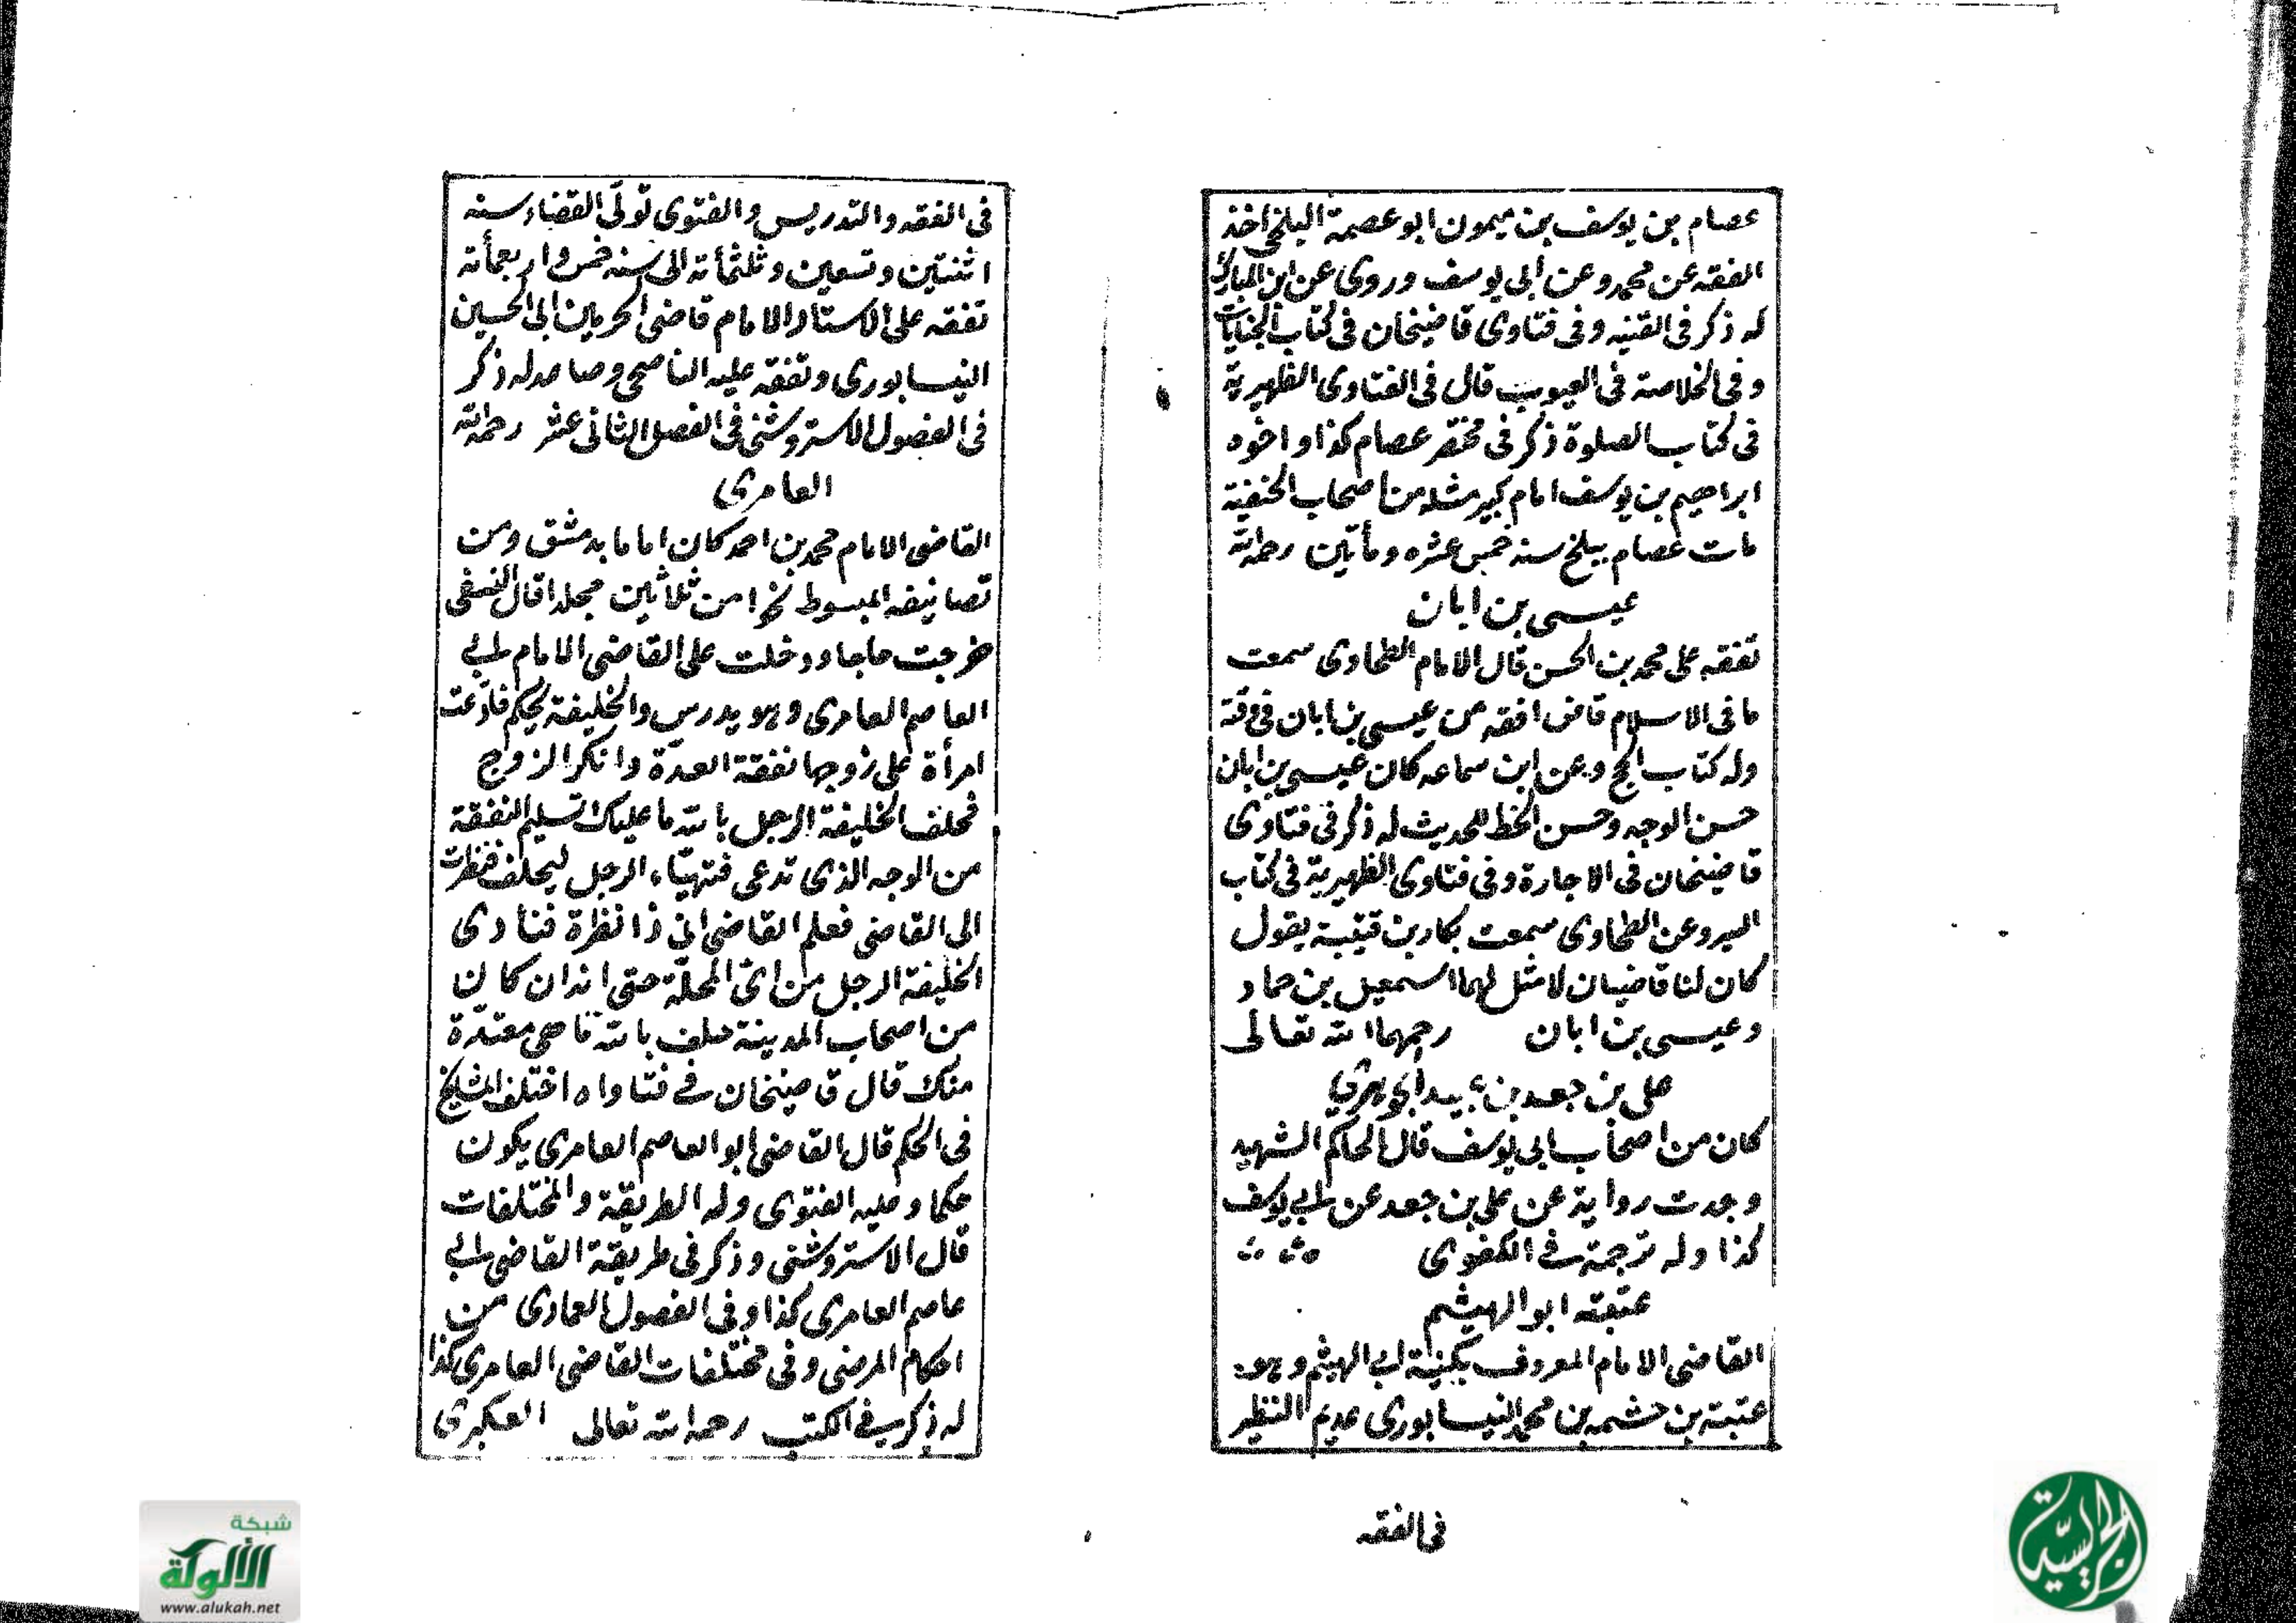 عصام بن يوسف بن ميمون ابو عصمة البلخى اخذ
الفقه عن محمد وعن ابى يوسف وروى عن ابن المبارك
له ذكر فى القنيه وفى فتاوى قاضيخان فى كتاب الجنايات
وفى الخلاصة فى العيوب قال فى الفتاوى الظهيرية
فى كتاب الصلوة ذكر فى مختصر عصام كذا واخوه
ابراهيم بن يوسف امام كبير مثله من اصحاب الحنفية
مات عصام ببلخ سنة خمس عشره ومأتين رحمه الله
عيسى بن ابان
تفقه على محمد بن الحسن قال الامام الطحاوى سمعت
ما فى الاسلام قاض افقه من عيسى بن ابان فى وقته
وله كتاب الحج وعن ابن سماعه كان عيسى بن ابان
حسن الوجه وحسن الخط للحديث له ذكر فى فتاوى
قاضيخان فى الاجارة وفى فتاوى الظهيرية فى كتاب
السير وعن الطحاوى سمعت بكار بن قتيبة يقول
كان لنا قاضيان لا مثل لهما اسمعيل بن حماد
وعيسى بن ابان رحمهما الله تعالى
على بن جعد بن عبيد الجوهرى
كان من اصحاب ابى يوسف قال الحاكم الشهيد
وجدت رواية عن على بن جعد عن ابى يوسف
كذا وله ترجمة فى الكفوى
عتبة ابو الهيثم
القاضى الامام المعروف بكنية ابى الهيثم وهو
عتبة بن خشمه بن محمد النيسابورى عديم النظير
فى الفقه
فى الفقه والتدريس والفتوى تولى القضاء سنه
اثنتين وتسعين وثلثمأته الى سنه خمس واربعمأته
تفقه على الاستاد الامام قاضى الحرمين ابى الحسين
النيسابورى وتفقه عليه الناصحى وصاعد له ذكر
فى الفصول الاستروشنى فى الفصل الثانى عشر رحمه الله
العامرى
القاضى الامام محمد بن احمد كان اماما بدمشق ومن
تصانيفه المبسوط نحوا من ثلاثين مجلدا قال النسفى
خرجت حاجا ودخلت على القاضى الامام ابى
العاصم العامرى وهو يدرس والخليفة يحكم فادعت
امرأة على زوجها نفقة العدّة وانكر الزوج
فحلف الخليفة الرجل بالله ما عليك تسليم النفقة
من الوجه الذى تدعى فتهيّاء الرجل ليحلف فنظرت
الى القاضى فعلم القاضى انى ذا نظرة فنادى
الخليفة الرجل من اىّ المحلّة حتى انه ان كان
من اصحاب المدينة حلف بالله ما هى معتدّة
منك قال قاضيخان فى فتاواه اختلف المشايخ
فى الحكم قال القاضى ابو العاصم العامرى يكون
حكما وعليه الفتوى وله الطريقة والمختلفات
قال الاستروشنى وذكر فى طريقة القاضى ابى
عاصم العامرى كذا وفى الفصول العمادى من
احكام المرضى وفى مختلفات القاضى العامرى كذا
له ذكر فى الكتب رحمه الله تعالى العكبرى
شبكة
الألوكة
www.alukah.net